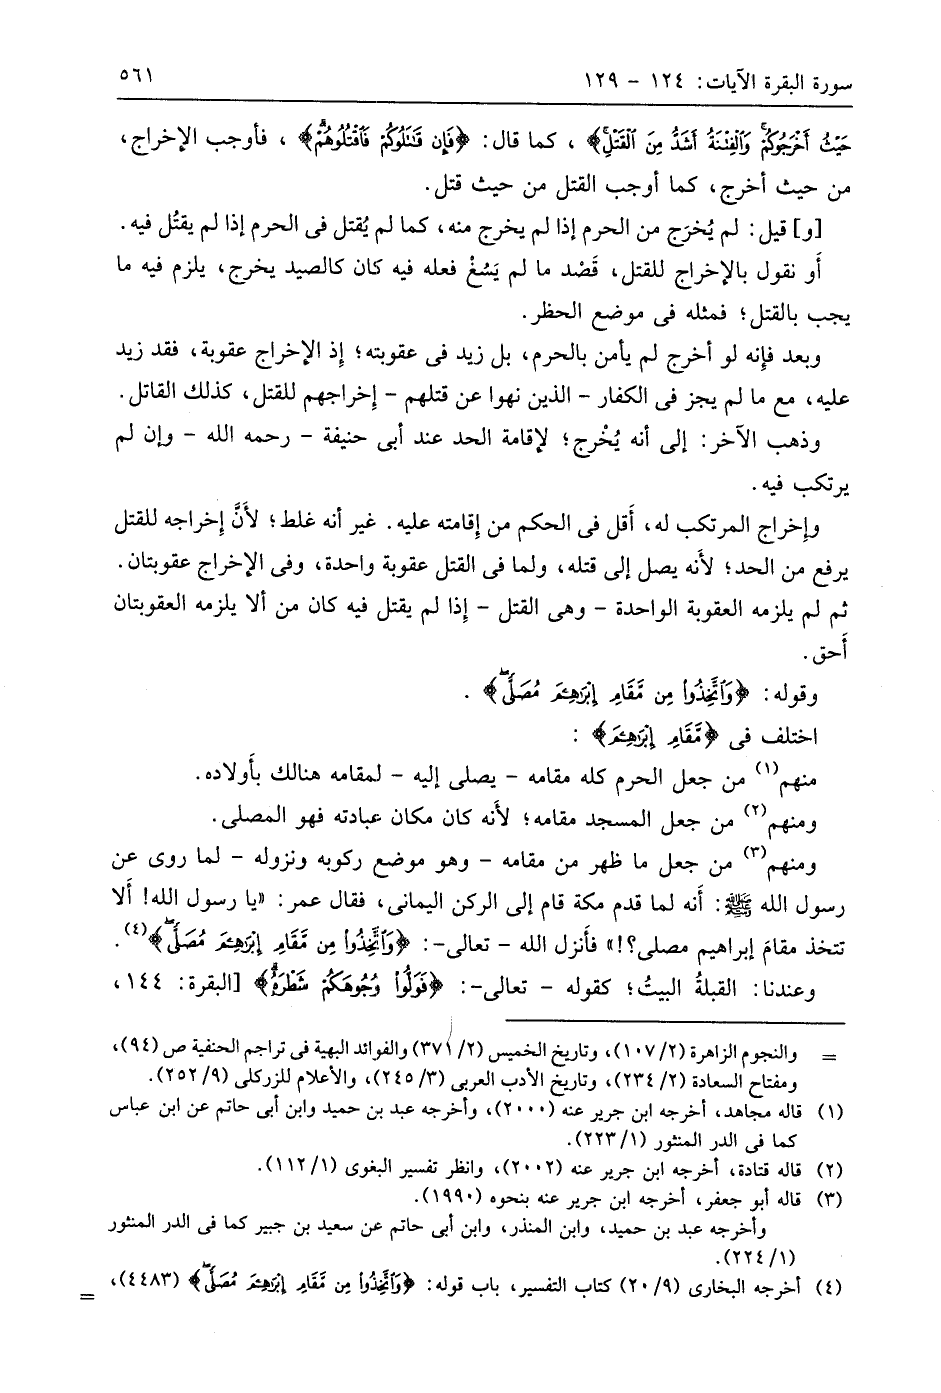 سورة البقرة الآيات: ١٢٤ - ١٢٩
٥٦١
حَيْثُ أَخْرَجُوكُمْ وَالْفِتْنَةُ أَشَدُّ مِنَ الْقَتْلِ﴾ ، كما قال: ﴿فَإِن قَٰتَلُوكُمْ فَاقْتُلُوهُمْ﴾ ، فأوجب الإخراج،
من حيث أخرج، كما أوجب القتل من حيث قتل.
[و] قيل: لم يُخرَج من الحرم إذا لم يخرج منه، كما لم يُقتل فى الحرم إذا لم يقتُل فيه.
أَو نقول بالإخراج للقتل، قَصْد ما لم يَسُغْ فعله فيه كان كالصيد يخرج، يلزم فيه ما
يجب بالقتل؛ فمثله فى موضع الحظر.
وبعد فإنه لو أخرج لم يأمن بالحرم، بل زيد فى عقوبته؛ إذ الإخراج عقوبة، فقد زيد
عليه، مع ما لم يجز فى الكفار - الذين نهوا عن قتلهم - إخراجهم للقتل، كذلك القاتل.
وذهب الآخر: إلى أنه يُخْرج؛ لإقامة الحد عند أبى حنيفة - رحمه الله - وإن لم
يرتكب فيه.
وإخراج المرتكب له، أقل فى الحكم من إقامته عليه. غير أنه غلط؛ لأَنَّ إخراجه للقتل
يرفع من الحد؛ لأنه يصل إلى قتله، ولما فى القتل عقوبة واحدة، وفى الإخراج عقوبتان.
ثم لم يلزمه العقوبة الواحدة - وهى القتل - إذا لم يقتل فيه كان من ألا يلزمه العقوبتان
أَحق.
وقوله: ﴿وَاتَّخِذُوا مِن مَّقَامِ إِبْرَٰهِـۧمَ مُصَلًّى﴾ .
اختلف فى ﴿مَّقَامِ إِبْرَٰهِـۧمَ﴾ :
منهم(١) من جعل الحرم كله مقامه - يصلى إليه - لمقامه هنالك بأولاده.
ومنهم(٢) من جعل المسجد مقامه؛ لأنه كان مكان عبادته فهو المصلى.
ومنهم(٣) من جعل ما ظهر من مقامه - وهو موضع ركوبه ونزوله - لما روى عن
رسول الله ﷺ: أَنه لما قدم مكة قام إلى الركن اليمانى، فقال عمر: «يا رسول الله! أَلا
تتخذ مقامَ إبراهيم مصلى؟!» فأنزل الله - تعالى-: ﴿وَاتَّخِذُوا مِن مَّقَامِ إِبْرَٰهِـۧمَ مُصَلًّى﴾(٤).
وعندنا: القبلةُ البيتُ؛ كقوله - تعالى-: ﴿فَوَلُّوا وُجُوهَكُمْ شَطْرَهُ﴾ [البقرة: ١٤٤،
= والنجوم الزاهرة (١٠٧/٢)، وتاريخ الخميس (٣٧١/٢) والفوائد البهية فى تراجم الحنفية ص (٩٤)،
ومفتاح السعادة (٢٣٤/٢)، وتاريخ الأدب العربى (٢٤٥/٣)، والأعلام للزركلى (٢٥٢/٩).
(١) قاله مجاهد، أخرجه ابن جرير عنه (٢٠٠٠)، وأخرجه عبد بن حميد وابن أبى حاتم عن ابن عباس
كما فى الدر المنثور (٢٢٣/١).
(٢) قاله قتادة، أخرجه ابن جرير عنه (٢٠٠٢)، وانظر تفسير البغوى (١١٢/١).
(٣) قاله أبو جعفر، أخرجه ابن جرير عنه بنحوه (١٩٩٠).
وأخرجه عبد بن حميد، وابن المنذر، وابن أبى حاتم عن سعيد بن جبير كما فى الدر المنثور
(٢٢٤/١).
(٤) أخرجه البخارى (٢٠/٩) كتاب التفسير، باب قوله: ﴿وَاتَّخِذُوا مِن مَّقَامِ إِبْرَٰهِـۧمَ مُصَلًّى﴾ (٤٤٨٣)،
=